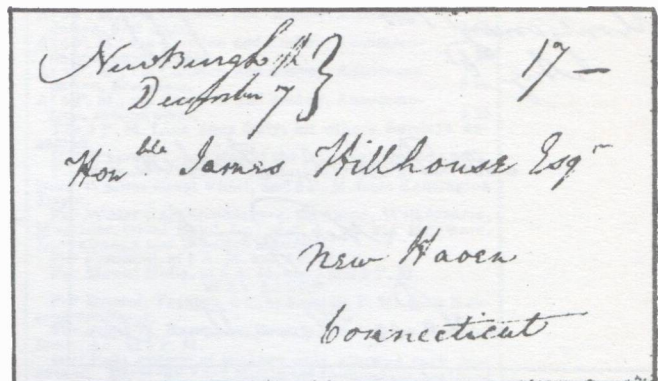 NewBurgh
December 7 } 17 —
Hon^ble James Hillhouse Esq^r
New Haven
Connecticut